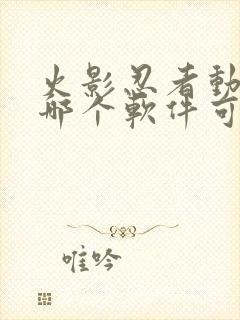 火影忍者動
哪个軟件可
唯吟